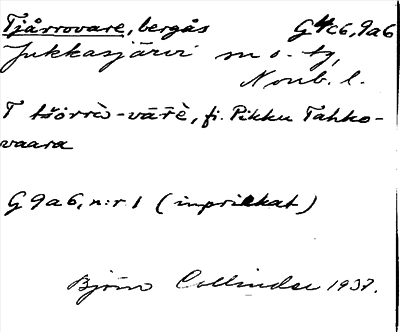 Tjårrovare, bergås G4c6, 9a6
Jukkasjärvi sn o. tg,
Norrb. l.
T tšŏrrὼ-vārὲ̄, fi. Pikku Tahko-
vaara
G 9a6, n:r 1 (inprickat)
Björn Collinder 1937.